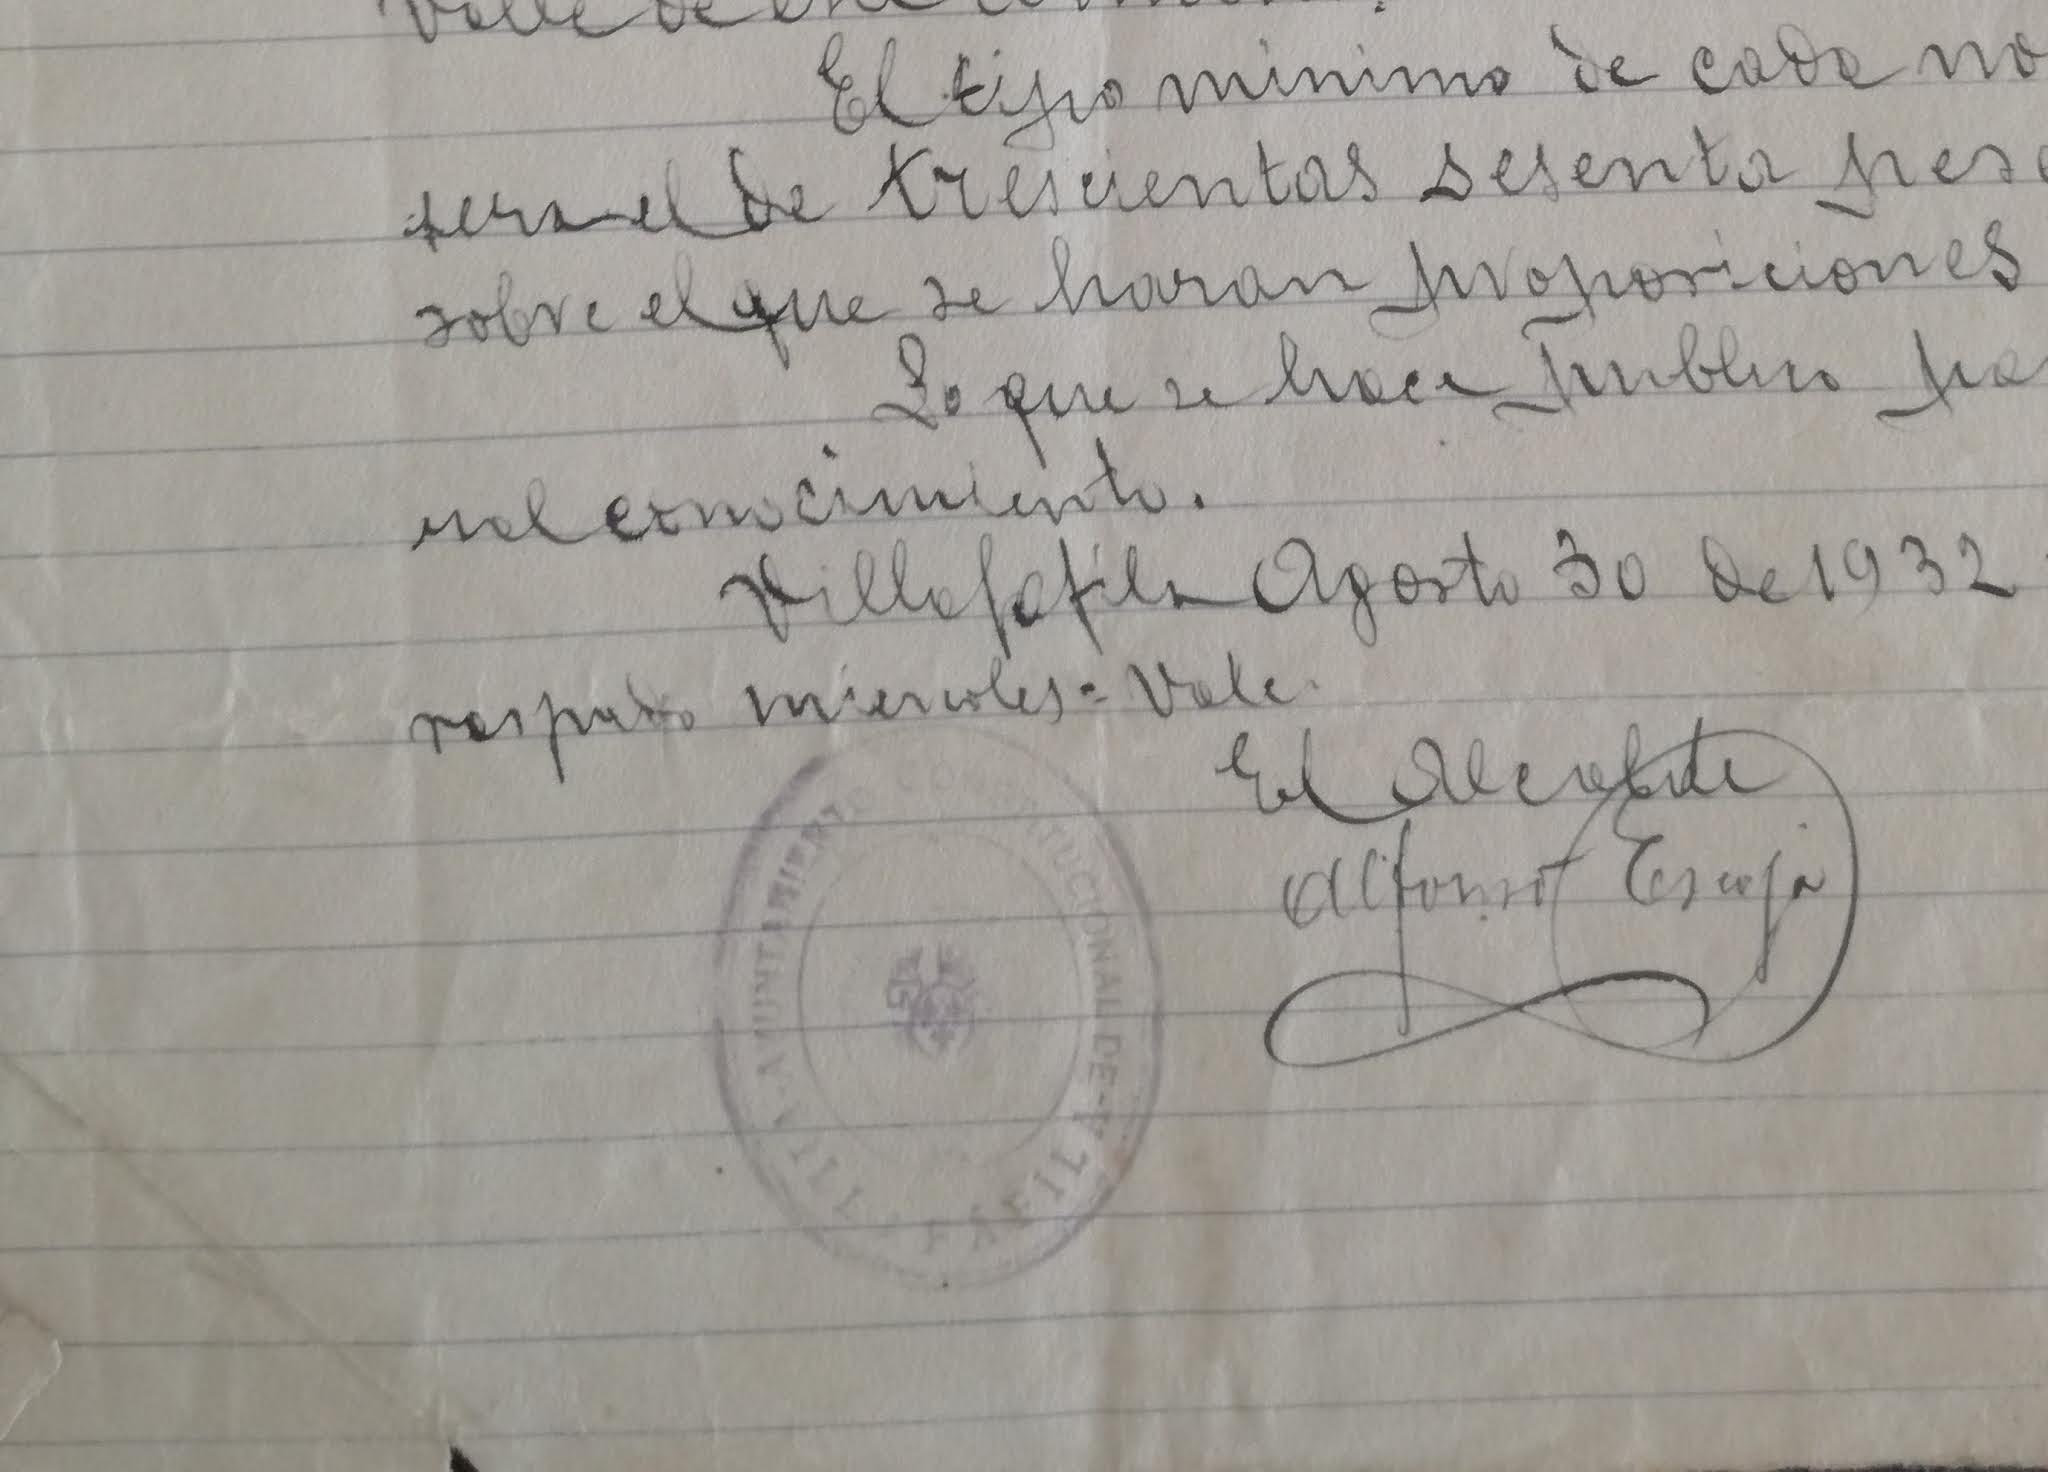 El tipo minimo de cada no
sera el de trescientas sesenta pese
sobre el que se haran proposiciones
Lo que se hace publico pa
ual conocimiento.
Villafafila Agosto 30 de 1932
raspado miercoles = Vale.
El Alcalde
Alfonso Escaja
AYUNTAMIENTO CONSTITUCIONAL DE VILLAFAFILA